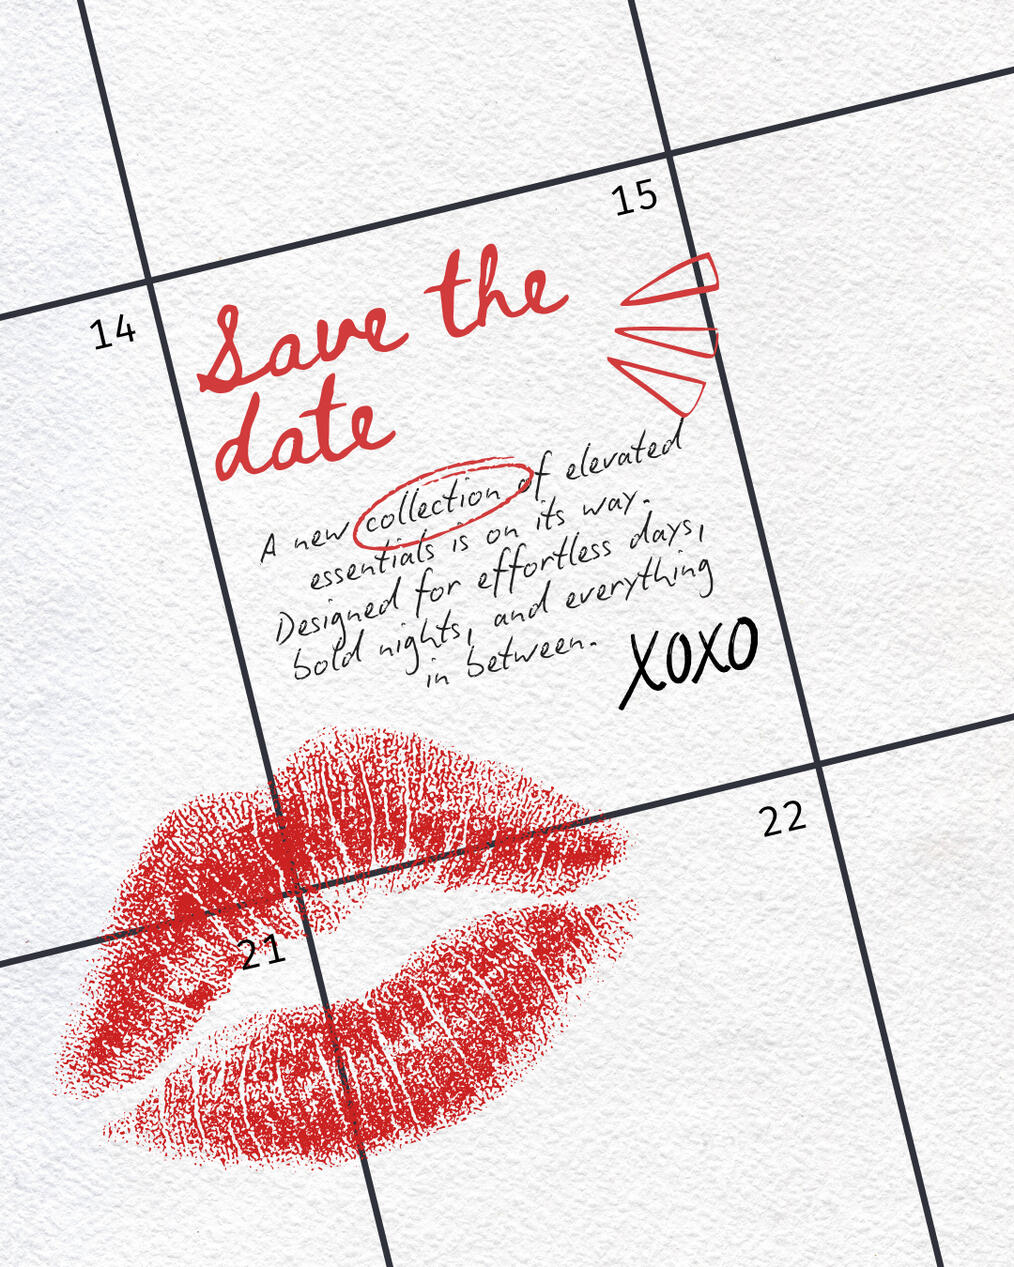 15
14
Save the
date
A new collection of elevated
essentials is on its way.
Designed for effortless days,
bold nights, and everything
in between.
XOXO
22
21